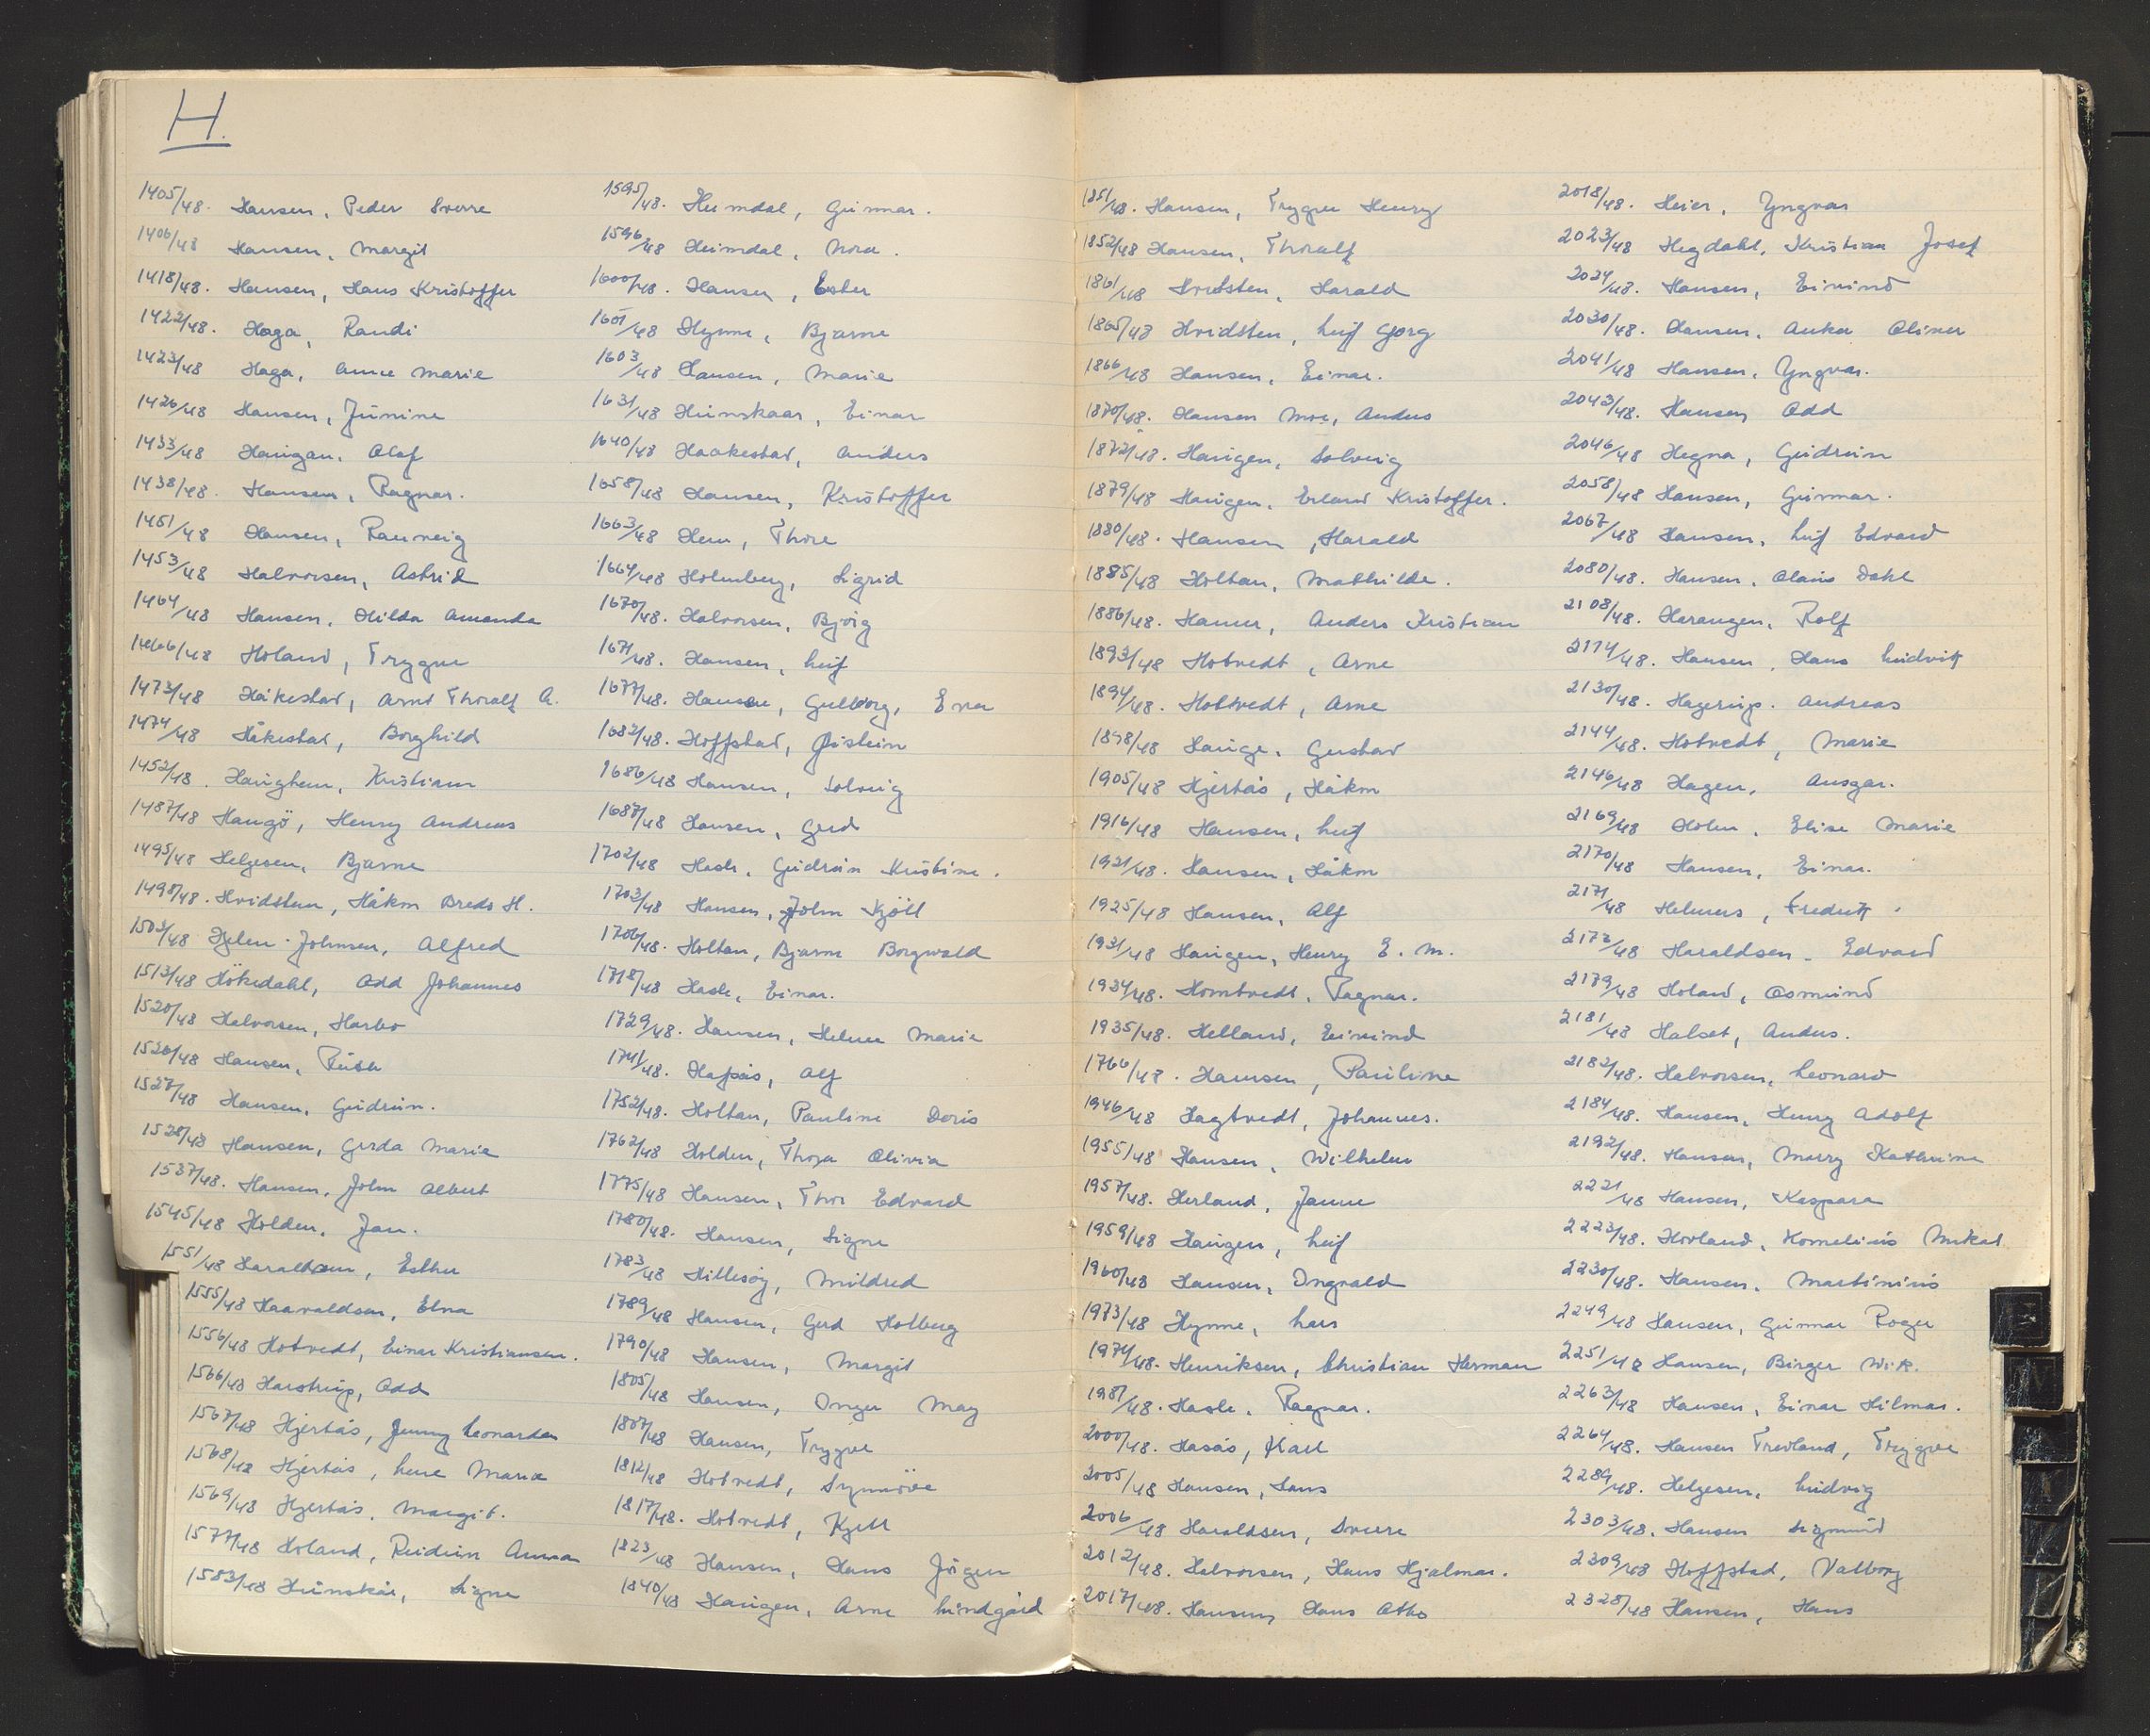 H.
1405/48. Hansen, Peder Sverre
1406/48 Hansen, Margit
1418/48. Hansen, Hans Kristoffer
1422/48. Haga, Randi
1423/48 Haga, Anne Marie
1426/48 Hansen, Junine
1433/48 Haugan, Olaf
1438/48. Hansen, Ragnar.
1451/48 Hansen, Ranveig
1453/48 Halvorsen, Astrid
1464/48 Hansen, Hilda Amanda
1466/48 Holand, Trygve
1473/48 Håkestad, Arnt Thoralf A.
1474/48 Håkestad, Borghild
1452/48. Haughem, Kristian
1487/48 Haugö, Henry Andreas
1495/48 Helgesen, Bjarne
1498/48. Hvidsten, Håkon Breds H.
1503/48 Hjelen-Johnsen, Alfred
1513/48 Hökedahl, Odd Johannes
1520/48 Halvorsen, Harbo
1526/48 Hansen, Ruth
1527/48 Hansen, Gudrun.
1528/48 Hansen, Gerda Marie
1537/48. Hansen, John Albert
1545/48 Holden, Jan.
1551/48 Haraldsen, Esther
1555/48 Haavaldsen, Elna
1556/48 Hotvedt, Einar Kristiansen.
1566/48 Harstrup, Odd
1567/48 Hjertås, Jenny Leonarda
1568/48 Hjertås, Lene Marie
1569/48 Hjertås, Margit.
1577/48 Holand, Reidun Anna
1583/48 Hunskår, Signe
1595/48. Heimdal, Gunnar.
1596/48 Heimdal, Nora.
1600/48. Hansen, Ester
1601/48 Hynne, Bjarne
1603/48 Hansen, Marie
1631/48 Hunskaar, Einar
1640/48 Haakestad, Anders
1658/48 Hansen, Kristoffer
1663/48 Hem, Thore
1664/48 Holmberg, Sigrid
1670/48. Halvorsen, Bjørg
1671/48. Hansen, Leif
1677/48. Hansen, Gulborg, Eva
1682/48. Hoffstad, Øistein
1686/48 Hansen, Solveig
1687/48 Hansen, Gerd
1702/48 Hasle, Gudrun Kristine.
1703/48 Hansen, John Kjöll
1706/48. Holtan, Bjarne Borgwald
1718/48 Hasle, Einar.
1729/48. Hansen, Helene Marie
1741/48. Hafsås, Alf
1752/48. Holtan, Pauline Doris
1762/48 Holden, Thora Olivia
1775/48 Hansen, Thor Edvard
1780/48. Hansen, Signe
1783/48 Hillesøy, Mildred
1789/48 Hansen, Gerd Holberg
1790/48 Hansen, Margit
1805/48 Hansen, Inger May
1807/48 Hansen, Trygve
1812/48 Hotvedt, Synnöve
1817/48. Hotvedt, Kjell
1823/48 Hansen, Hans Jörgen
1840/48 Haugen, Arne Lindgård
1851/48. Hansen, Trygve Henry
1852/48 Hansen, Thoralf
1861/48 Hvidsten, Harald
1865/48 Hvidsten, Leif Georg
1866/48 Hansen, Einar.
1870/48. Hansen Moe, Anders
1872/48. Haugen, Solveig
1879/48 Haugen, Erland Kristoffer.
1880/48. Hansen, Harald
1885/48 Holtan, Mathilde.
1886/48. Hamer, Anders Kristian
1893/48 Hotvedt, Arne
1894/48. Holtvedt, Arne
1898/48 Hauge, Gustav
1905/48 Hjertås, Håkon
1916/48 Hansen, Leif
1921/48. Hansen, Håkon
1925/48 Hansen, Alf
1931/48 Haugen, Henry E. M.
1934/48. Homtvedt, Ragnar.
1935/48. Helland, Eivind
1766/48. Hansen, Pauline
1946/48 Hagtvedt, Johannes.
1955/48 Hansen, Wilhelm
1957/48. Herland, Janne
1959/48 Haugen, Leif
1960/48 Hansen, Ingvald
1973/48 Hynne, Lars
1974/48. Henriksen, Christian Herman
1981/48. Hasle, Ragnar.
2000/48. Hasås, Karl
2005/48 Hansen, Hans
2006/48 Haraldsen, Sverre
2012/48. Halvorsen, Hans Hjalmar.
2017/48. Hansen, Hans Otto
2018/48. Heier, Yngvar
2023/48 Hegdahl, Kristian Josef
2024/48. Hansen, Eivind
2030/48. Hansen, Anker Oliver
2041/48 Hansen, Yngvar.
2043/48. Hansen, Odd
2046/48 Hegna, Gudrun
2058/48 Hansen, Gunnar.
2067/48 Hansen, Leif Edvard
2080/48. Hansen, Olaus Dahl
2108/48. Harangen, Rolf
2114/48. Hansen, Hans Ludvik
2130/48. Hagerup, Andreas
2144/48. Hotvedt, Marie
2146/48 Hagen, Ansgar.
2169/48 Holm, Elise Marie
2170/48 Hansen, Einar.
2171/48 Helmers, Fredrik.
2172/48 Haraldsen, Edvard
2179/48 Holand, Osmund
2181/48 Halset, Anders.
2182/48. Halvorsen, Leonard
2184/48. Hansen, Henry Adolf
2192/48. Hansen, Marry Kathrine
2221/48 Hansen, Kaspara
2223/48. Hovland, Kornelius Mikal
2230/48. Hansen, Martinius
2249/48 Hansen, Gunnar Roger
2251/48 Hansen, Birger Wik.
2263/48 Hansen, Einar Hilmar.
2264/48. Hansen Trevland, Trygve
2289/48. Helgesen, Ludvig
2303/48. Hansen Sigmund
2309/48 Hoffstad, Valborg
2328/48 Hansen, Hans